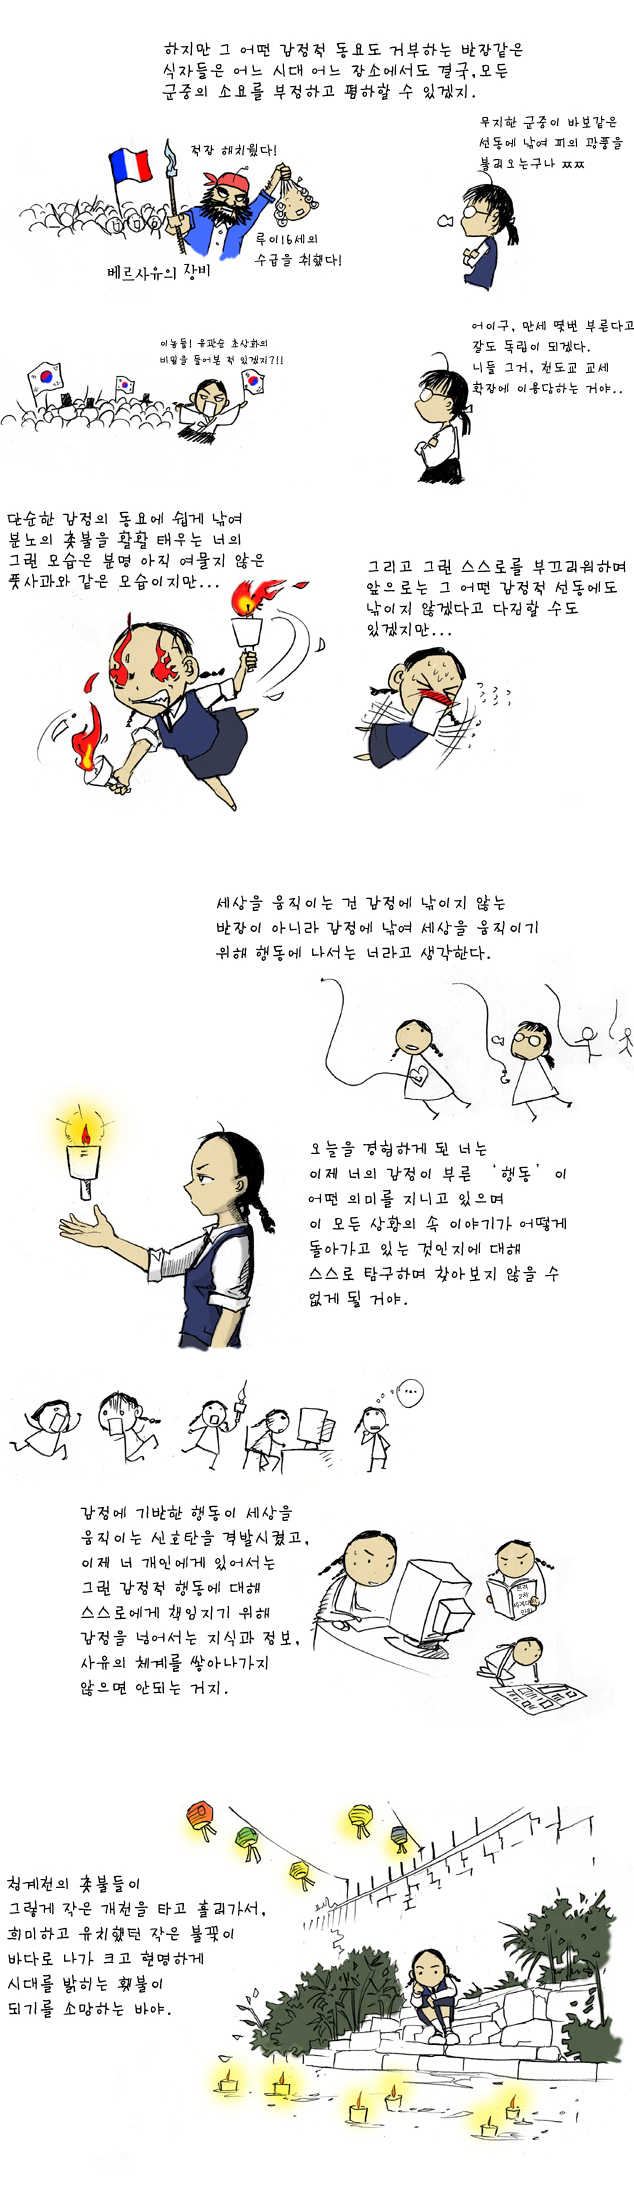 하지만 그 어떤 감정적 동요도 거부하는 반장같은
식자들은 어느 시대 어느 장소에서도 결국,모든
군중의 소요를 부정하고 폄하할 수 있겠지.
무지한 군중이 바보같은
선동에 낚여 피의 광풍을
불러오는구나 ㅉㅉ
적장 해치웠다!
루이16세의
수급을 취했다!
베르사유의 장비
어이구, 만세 몇번 부른다고
잘도 독립이 되겠다.
니들 그거, 천도교 교세
확장에 이용당하는 거야..
이놈들! 유관순 초상화의
비밀을 들어본 적 있겠지?!!
단순한 감정의 동요에 쉽게 낚여
분노의 촛불을 활활 태우는 너의
그런 모습은 분명 아직 여물지 않은
풋사과와 같은 모습이지만...
그리고 그런 스스로를 부끄러워하며
앞으로는 그 어떤 감정적 선동에도
낚이지 않겠다고 다짐할 수도
있겠지만...
세상을 움직이는 건 감정에 낚이지 않는
반장이 아니라 감정에 낚여 세상을 움직이기
위해 행동에 나서는 너라고 생각한다.
오늘을 경험하게 된 너는
이제 너의 감정이 부른 '행동'이
어떤 의미를 지니고 있으며
이 모든 상황의 속 이야기가 어떻게
돌아가고 있는 것인지에 대해
스스로 탐구하며 찾아보지 않을 수
없게 될 거야.
...
감정에 기반한 행동이 세상을
움직이는 신호탄을 격발시켰고,
이제 너 개인에게 있어서는
그런 감정적 행동에 대해
스스로에게 책임지기 위해
감정을 넘어서는 지식과 정보,
사유의 체계를 쌓아나가지
않으면 안되는 거지.
청계천의 촛불들이
그렇게 작은 개천을 타고 흘러가서,
희미하고 유치했던 작은 불꽃이
바다로 나가 크고 현명하게
시대를 밝히는 횃불이
되기를 소망하는 바야.